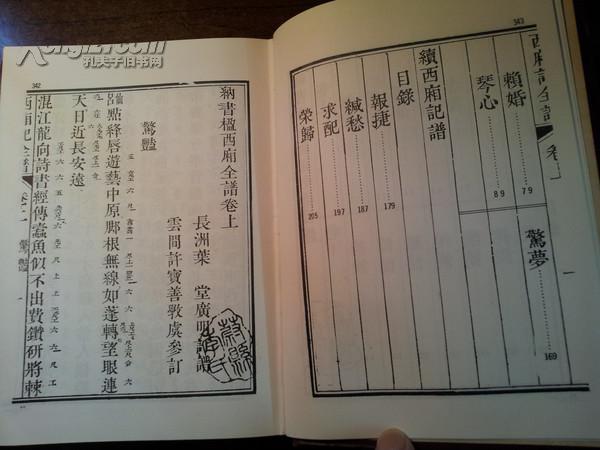 343
西廂記全譜
卷上
一
賴婚 79
琴心 89
驚夢 169
續西廂記譜
目錄
報捷 179
緘愁 187
求配 197
榮歸 205
342
納書楹西廂全譜卷上
長洲葉 堂廣明訂譜
雲間許寶善斆虞參訂
驚豔
仙呂 點絳唇遊藝中原腳根無線如蓬轉望眼連
天日近長安遠
混江龍向詩書經傳蠹魚似不出費鑽研將棘
西廂記全譜
卷上
驚豔
孔夫子旧书网